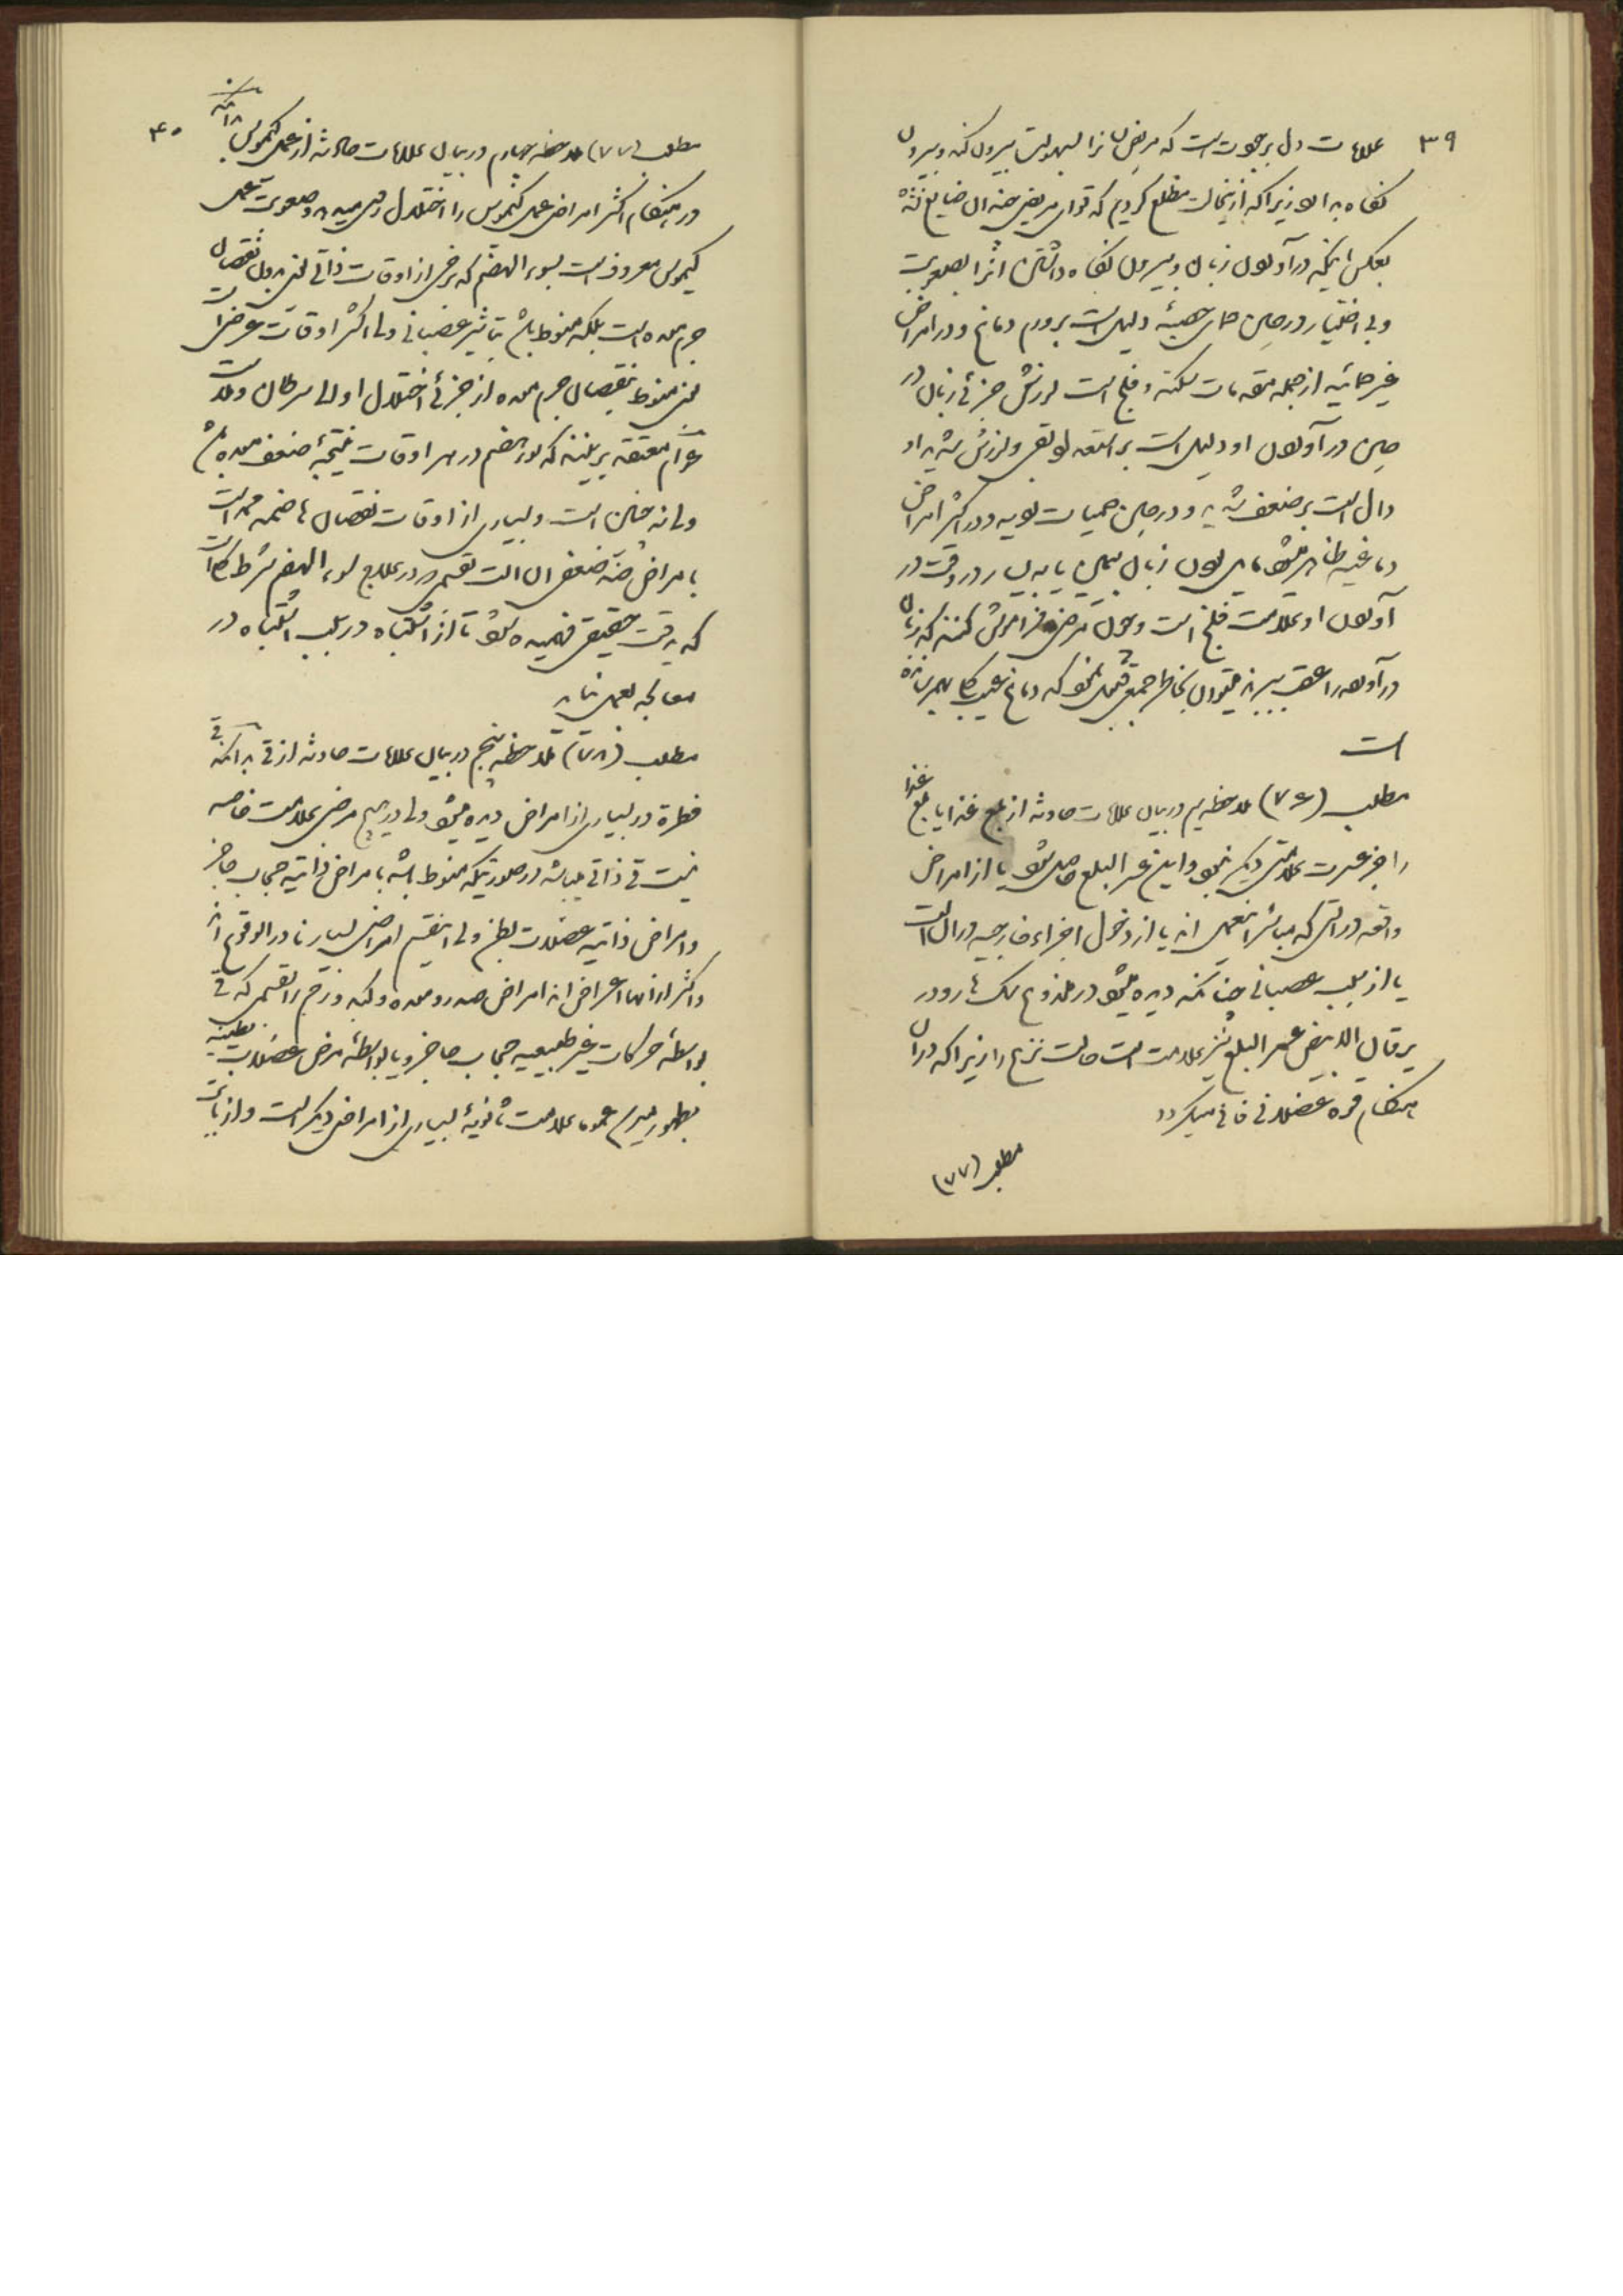 ۳۹
علامات دال بر خوب است که مریض زبانرا بسهولت بیرون کند و بیرون
نگاه بدارد زیرا که ازینحالت مطلع گردیم که قوای مریض چندان ضایع نشده
بعکس اینکه در آوردن زبان و بیرون نگاه داشتن انرا بصعوبت
و بی اختیار در حین حمای حصبه دلیل است بر ورم دماغ و در امراض
غیر حمائیه از جمله مقدمات سکته و فلج است لرزش جزئی زبان در
حین در آوردن او دلیل است بر استعداد لقوه و لرزش شدید او
دال است بر ضعف شدید و در حین حمیات نوبه و در اکثر امراض
دماغیه ظاهر میشود مایل بودن زبان بیمین یا به یسار در وقت در
آوردن او علامت فلج است و چون مریض فراموش کند که زبان
در آورده را عقب ببرد میتوان بخاطر جمعی حکم نمود که دماغ عیب کلی بهم رسانده
است
مطلب (۷۶) ملاحظه سیم در بیان علامات حادثه از بلع غذا یا بلع غذا
را جز عسرت علامتی دیگر نبود و این عسر البلع حاصل شود یا از امراض
واقعه در آلتی که مباشر اینعمل اند یا از دخول اجزاء خارجیه در ان الت
یا از سبب عصبانی چنانکه دیده میشود در ملدوغ سگ هار و در
یرقان الابیض عسر البلع نیز علامت است حالت نزع را زیرا که در ان
هنگام قوه عضلانی فانی میگردد
مطلب (۷۷)
۴۰
مطلب (۷۷) ملاحظه چهارم در بیان علامات حادثه از عمل کیموس
در هنگام اکثر امراض عمل کیموس را اختلال روی میدهد و صعوبت عمل
کیموس معروف است بسوء الهضم که برخی از اوقات ذاتی یعنی بدون نقصان
جرم معده است بلکه منوط باشد بتاثیر عصبانی ولی اکثر اوقات عرضی است
یعنی منوط بنقصان جرم معده از جزئی اختلال او الی سرطان و لاکن
عوام معتقد بر اینند که سوء هضم در همه اوقات نتیجه ضعف معده باشد
ولی نه چنین است و بسیاری از اوقات نقصان هاضمه همراه است
با مراض ضد ضعف ان الت تقسمی که در علاج سوء الهضم شرط کلی است
که بدقت حقیقی فهمیده شود تا از اشتباه در سبب اشتباه در
معالجه بعمل نیاید
مطلب (۷۸) ملاحظه پنجم در بیان علامات حادثه از قی بدانکه قی
فطرة در بسیاری از امراض دیده میشود ولی در هیچ مرض علامت خاصه
نیست قی ذاتی میباشد در صورتیکه منوط باشد بامراض ذاتیه حجاب حاجز
و امراض ذاتیه عضلات بطن ولی اینقسم امراض بسیار نادر الوقوع اند
و اکثر اوقات اعراض اند امراض صدر و معده و کبد و رحم را بقسمی که قی
بواسطه حرکات غیر طبیعیه حجاب حاجز و یا بواسطه مرض عضلات بطنیه
بظهور میرسد عموما علامت ثانویه بسیاری از امراض دیگر است و از